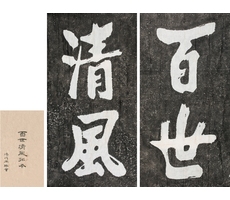 百世
清風